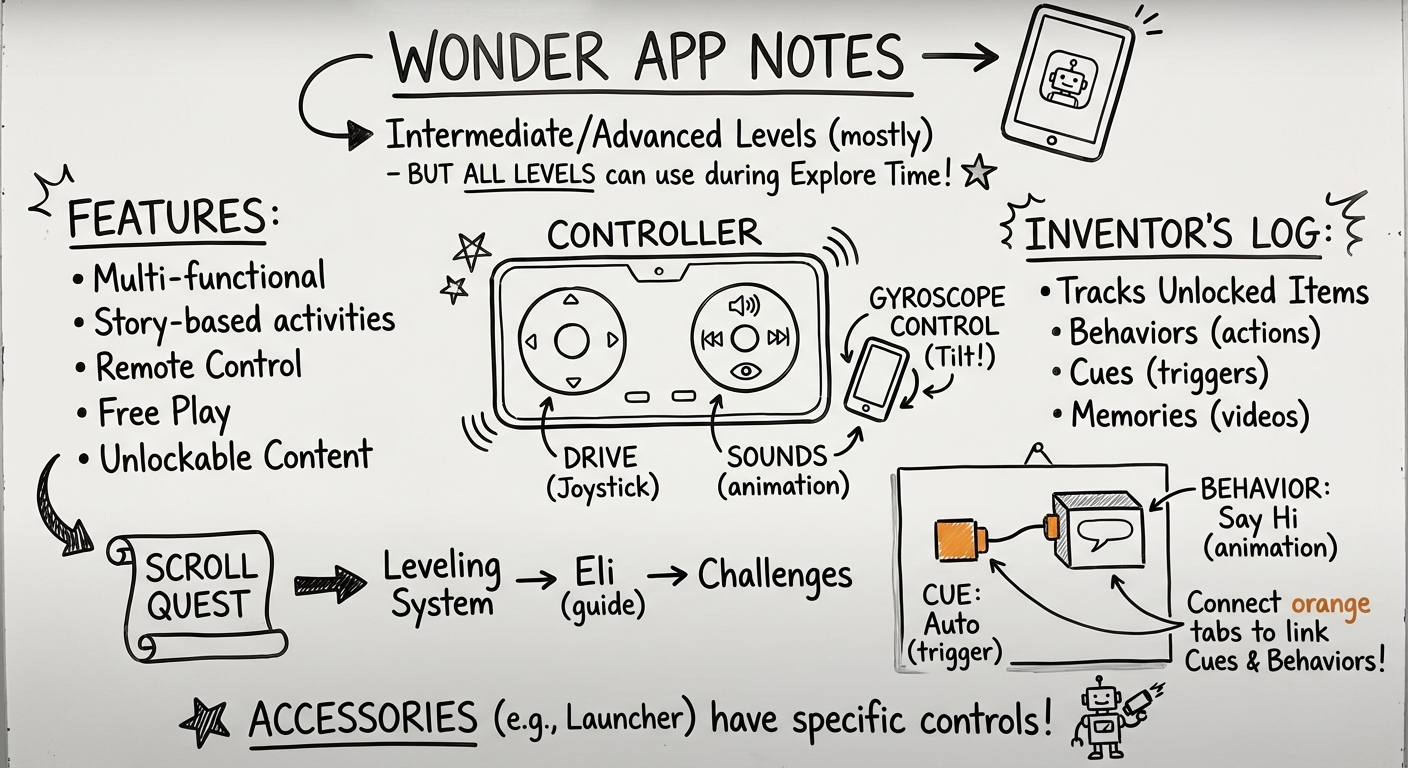 WONDER APP NOTES
Intermediate/Advanced Levels (mostly)
– BUT ALL LEVELS can use during Explore Time!
FEATURES:
• Multi-functional
• Story-based activities
• Remote Control
• Free Play
• Unlockable Content
CONTROLLER
GYROSCOPE
CONTROL
(Tilt!)
DRIVE
(Joystick)
SOUNDS
(animation)
INVENTOR'S LOG:
• Tracks Unlocked Items
• Behaviors (actions)
• Cues (triggers)
• Memories (videos)
SCROLL
QUEST
Leveling
System
Eli
(guide)
Challenges
CUE:
Auto
(trigger)
BEHAVIOR:
Say Hi
(animation)
Connect orange
tabs to link
Cues & Behaviors!
ACCESSORIES (e.g., Launcher) have specific controls!